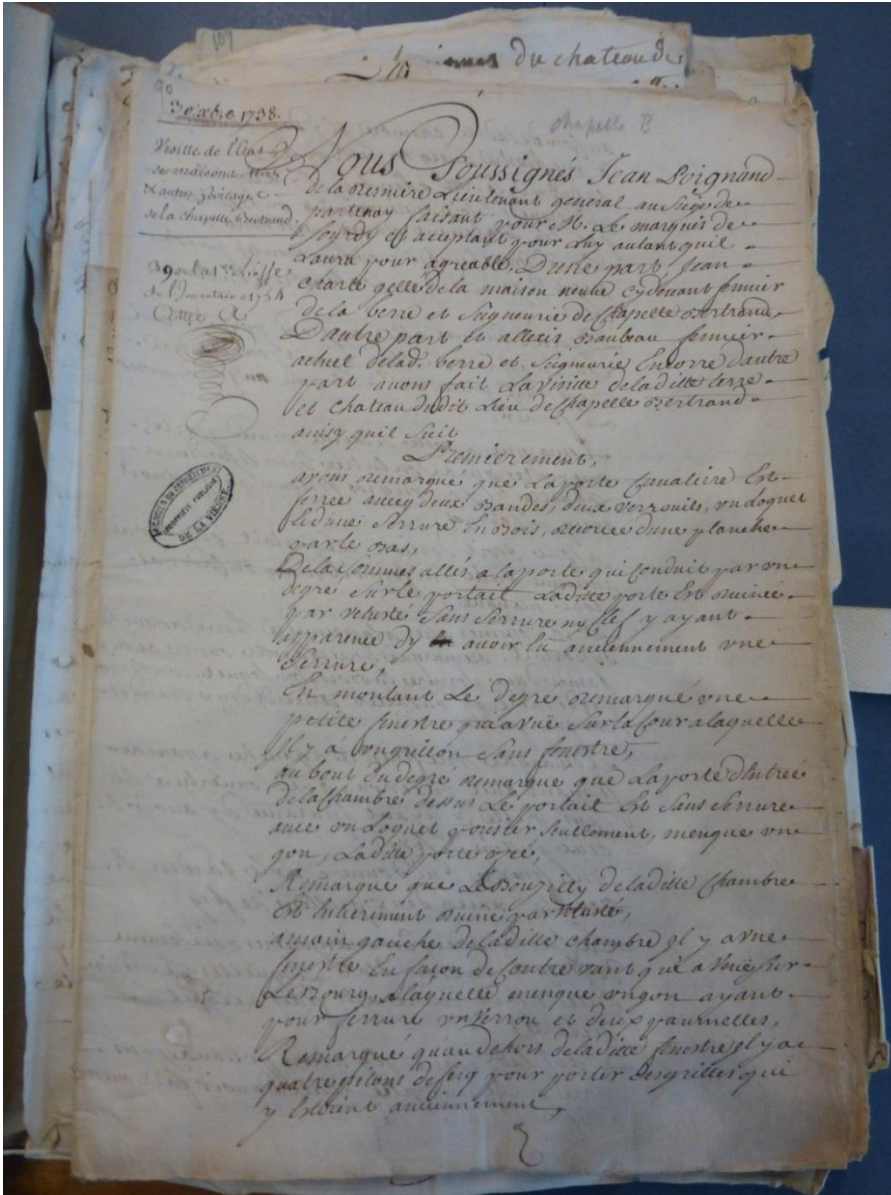 109
du chateau de
90
3 Oxbre 1738.
chapelle B
Visitte de l'Etat
& autres heritages
de la chapelle Bertrand
39 de la 1re Liasse
de l'Inventaire 1754
Cotte A
Nous Soussignés Jean Poignand
de la Lieutenant general au Siege de
partenay faisant pour M. Le marquis de
Sourdy et acceptant pour Luy autant quil
Laura pour agreable, Dune part, Jean
Charle gelle de la maison neuve cydevant fermier
de la terre et Seigneurie de Chapelle Bertrand
Dautre part et allexis Baubeau fermier
actuel de lad. terre et Seigneurie Encorre dautre
part avons fait La visitte de laditte terre
et chateau dudit Lieu de Chapelle Bertrand
ainsy quil Suit
Premierement,
avons remarqué que La porte Cavaliere Est
ferrée avecq deux Bandes, deux verrouils, un Loquet
et dune Serrure En Bois, dune planche
par le Bas,
De la Sommes allés a la porte qui Conduit par un
degré Sur le portail Laditte porte Est Ruinée
par vetusté Sans Serrure ny Clef y ayant
apparence dy avoir Eu anciennement une
Serrure,
En montant Le degré remarqué une
petite fenestre qui a vue Sur la Cour a laquelle
Il y à un grillon Sans fenestre,
au bout du degré remarqué que La porte dEntrée
de la Chambre dessus Le portail Est Sans Serrure
avec un Loquet Seullement, menque un
gon, Laditte porte usée,
Remarqué que Le Bouzilly de laditte Chambre
Est Entierement Ruiné par Vetusté,
a main gauche de laditte chambre il y a une
fenestre En façon de Contrevant qui a Veüe Sur
Le Bourg, a laquelle menque un gon ayant
pour ferrure un Verrou et deux paumelles,
Remarqué quau dehors de laditte fenestre il y a
quatre pitons de ferq pour porter des grilles qui
y Estoient anciennement,
ARCHIVES DU DEPARTEMENT
PROPRIÉTÉ PUBLIQUE
DE LA VIENNE